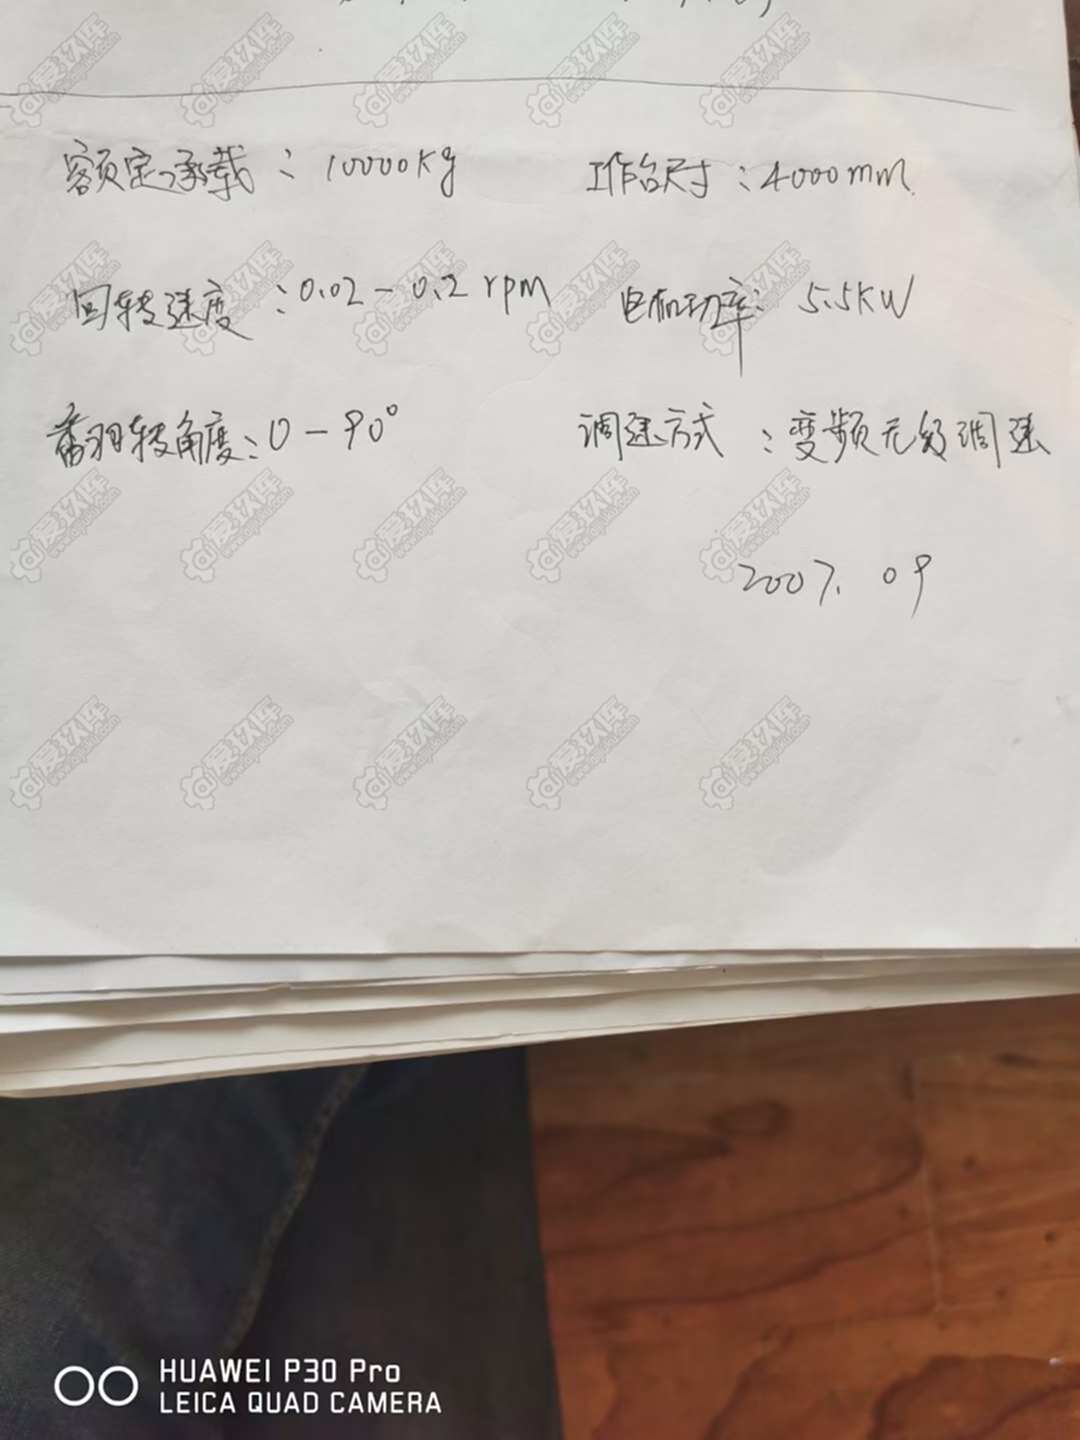 额定承载：10000Kg 工作台尺寸：4000mm
回转速度：0.02-0.2rpm 电机功率：5.5KW
翻转角度：0-90° 调速方式：变频无级调速
2007.09
爱玖库
www.aijiuku.com
HUAWEI P30 Pro
LEICA QUAD CAMERA